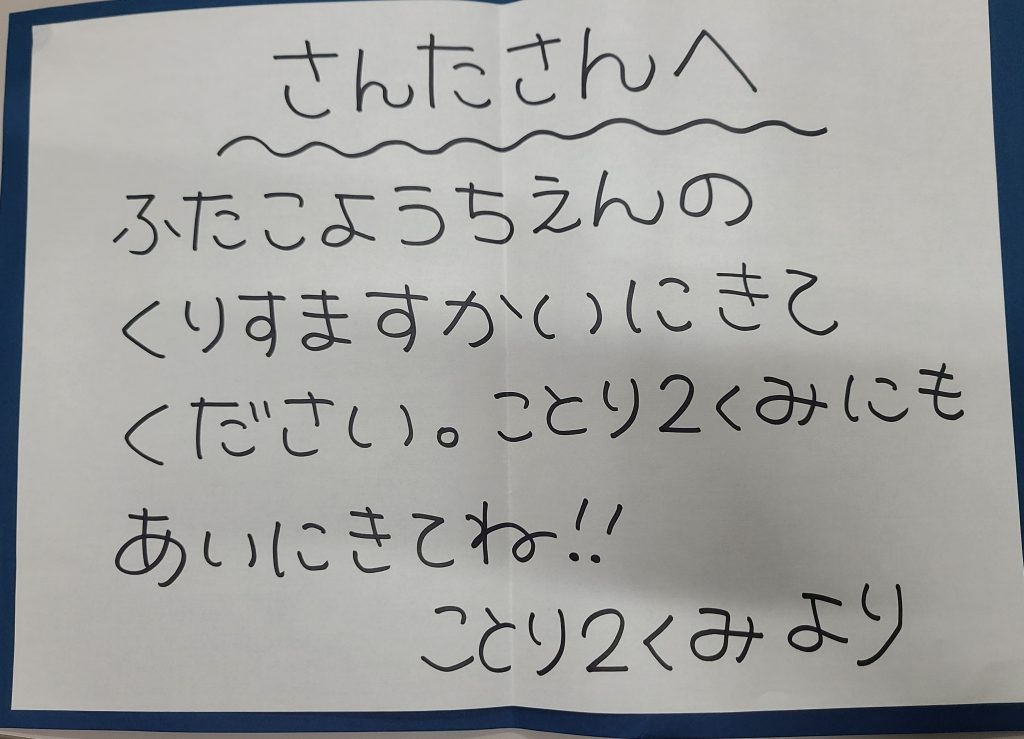 さんたさんへ
ふたこようちえんの
くりすますかいにきて
ください。ことり2くみにも
あいにきてね!!
ことり2くみより